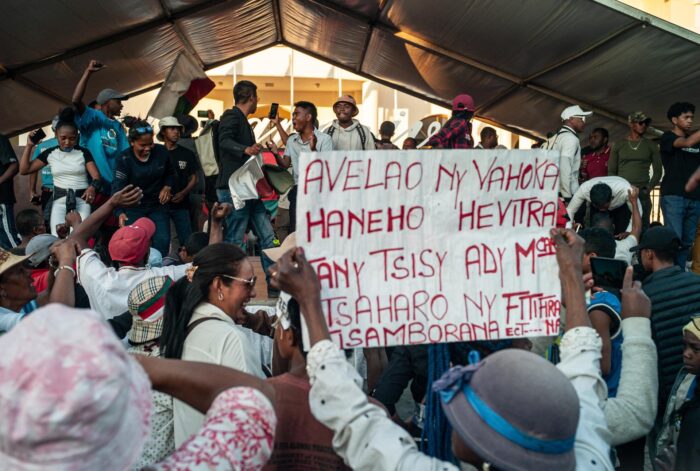 AVELAO NY VAHOKA
HANEHO HEVITRA
TANY TSISY ADY
TSAHARO NY FITIHRA
SAMBORANA ECT....NA